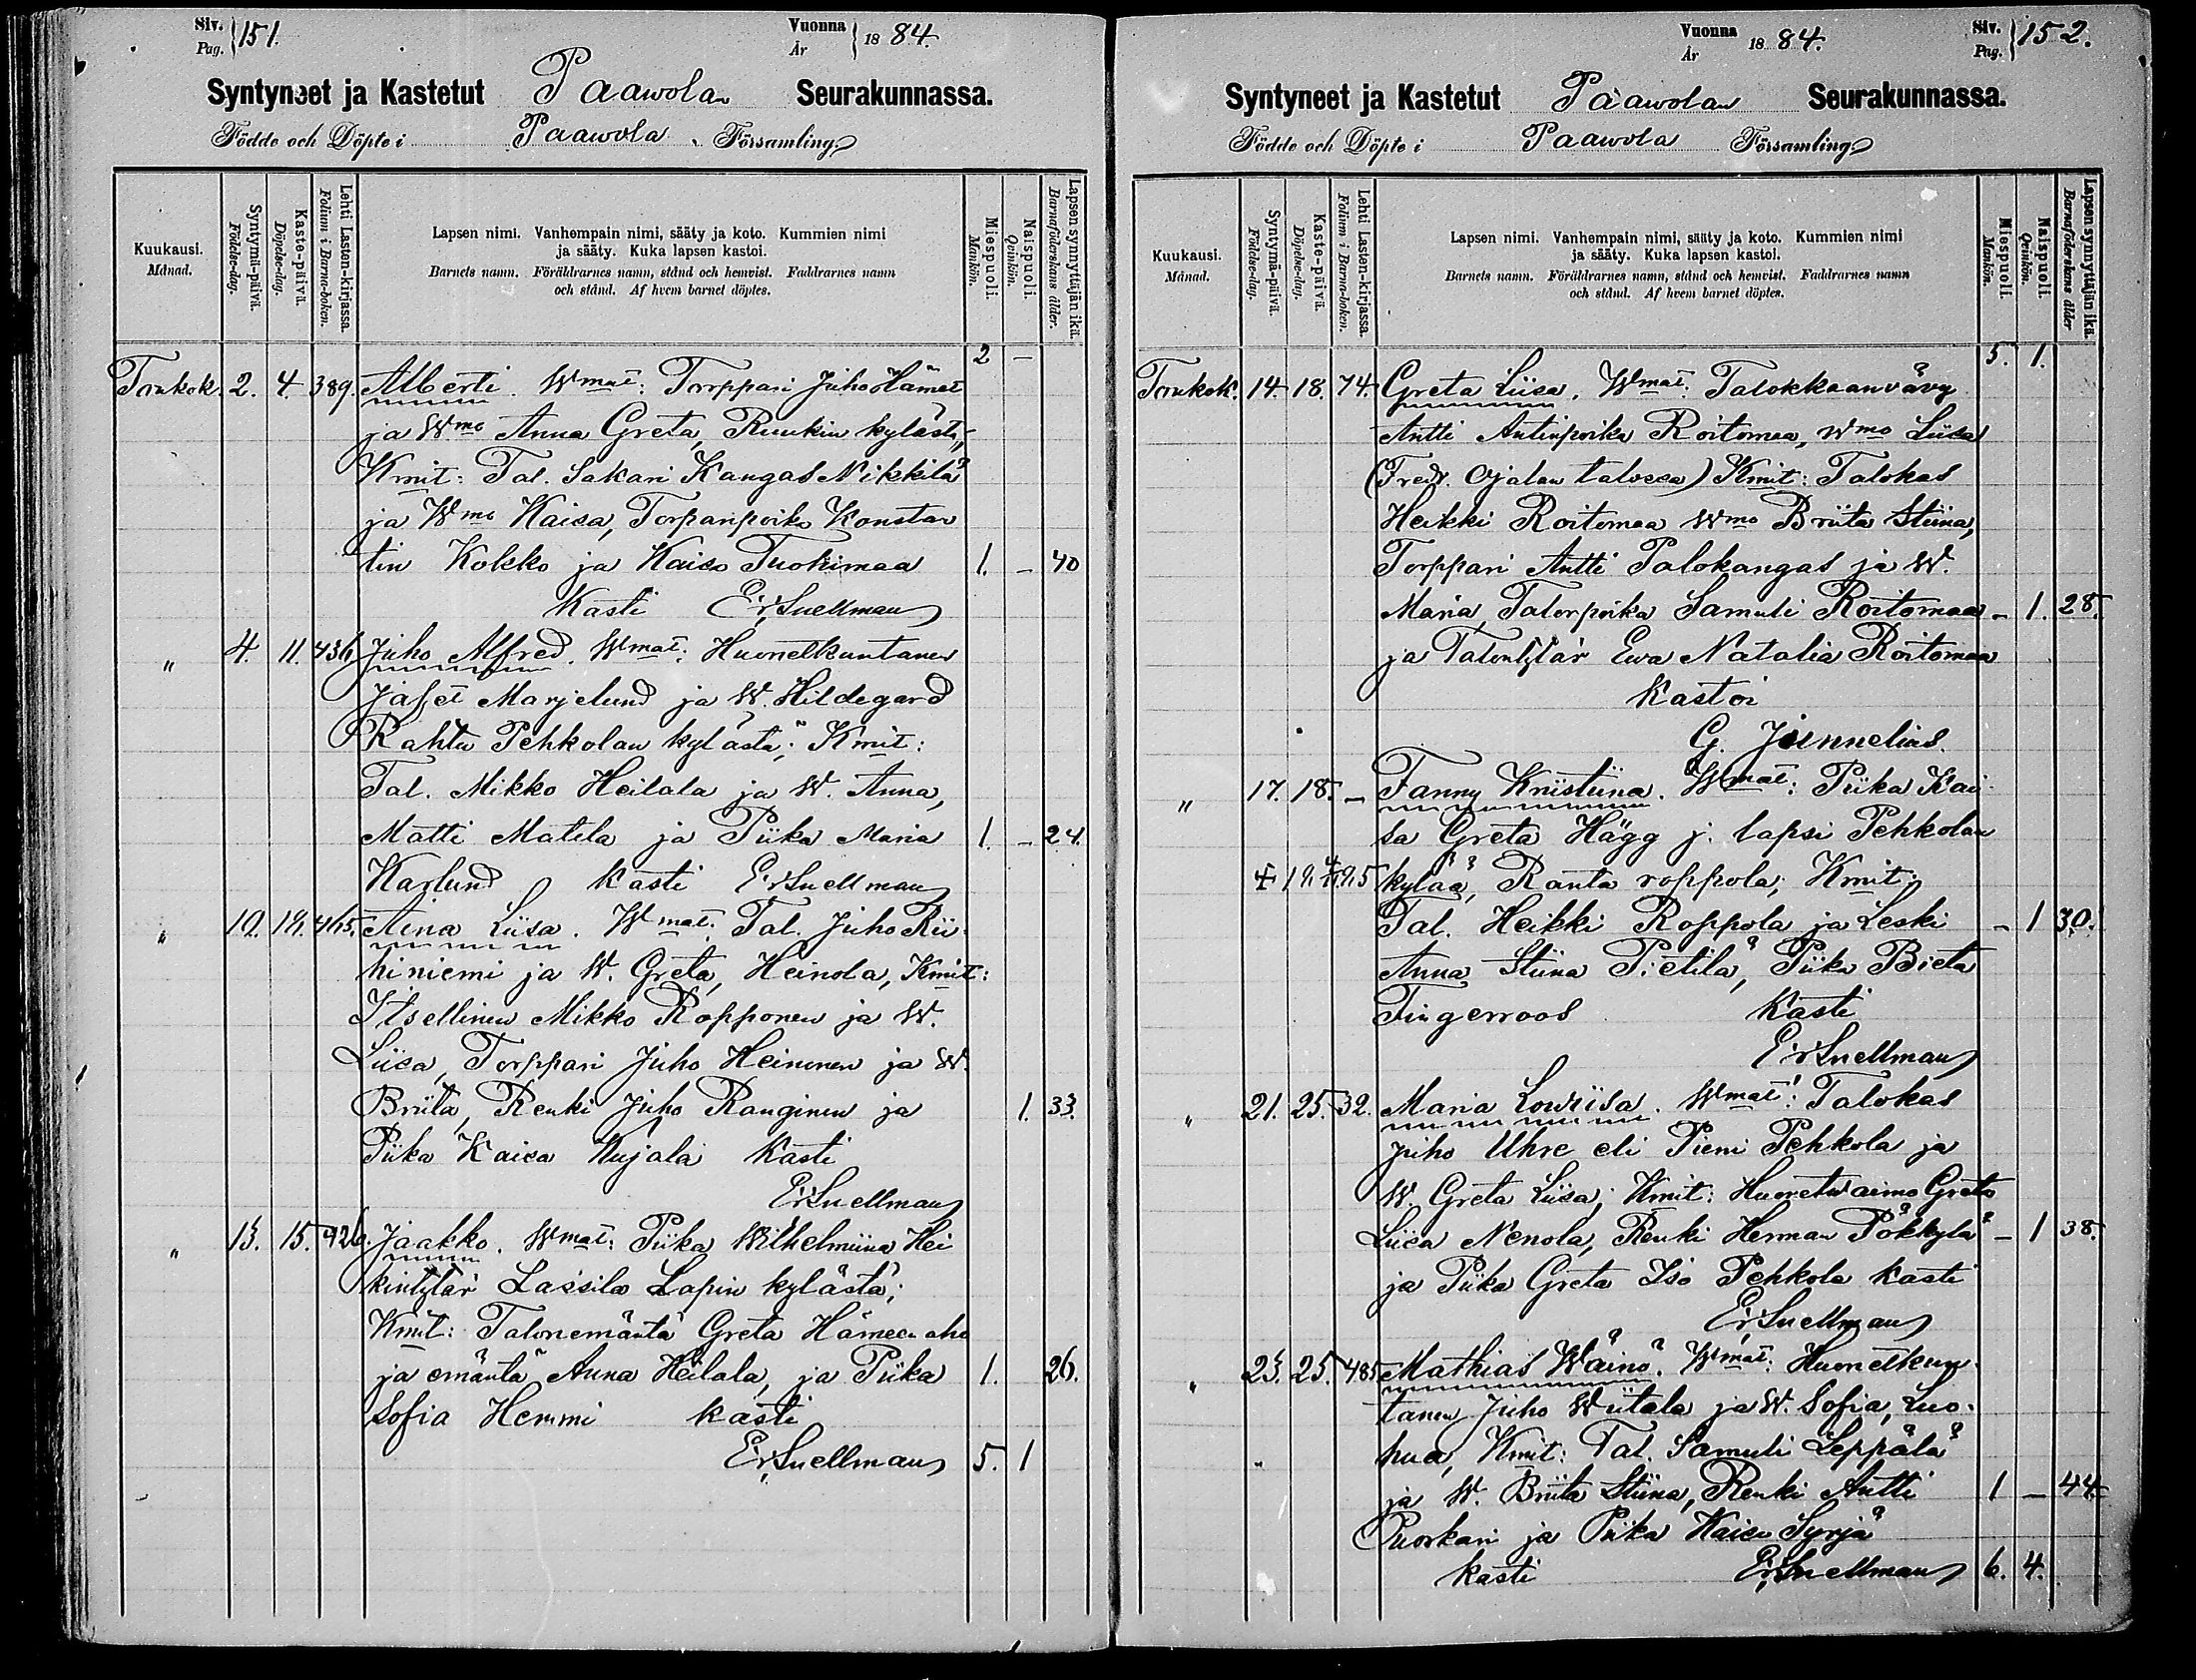 Siv. Pag. 151.
Vuonna År 1884.
Syntyneet ja Kastetut Paawolan Seurakunnassa.
Födde och Döpte i Paawola Församling
Kuukausi. Månad.
Syntymä-päivä. Födelse-dag.
Kaste-päivä. Döpelse-dag.
Lehti Lasten-kirjassa. Folium i Barna-boken.
Lapsen nimi. Vanhempain nimi, sääty ja koto. Kummien nimi
ja sääty. Kuka lapsen kastoi.
Barnets namn. Föräldrarnes namn, stånd och hemvist. Faddrarnes namn
och stånd. Af hvem barnet döptes.
Miespuoli. Mankön.
Naispuoli. Qvinkön.
Lapsen synnyttäjän ikä. Barnaföderskans ålder.
2 –
Toukok. 2. 4. 389. Alberti. Wmat: Torppari Juho Hämet
ja Wmo Anna Greta, Ruukin kylästä,
Kmit: Tal. Sakari Kangas Nikkilä
ja Wmo Kaisa, Torparipoika Konstan
tin Kokko ja Kaisa Tuokimaa 1. – 40
Kasti E;r Snellman
" 4. 11. 436 Juho Alfred. Wmat: Huonelkuntanen
Jafet Marjelund ja W. Hildegard
Rahtu Pehkolan kylästä; Kmit:
Tal. Mikko Heilala ja W. Anna,
Matti Matila ja Piika Maria 1. – 24.
Karlund Kasti E;r Snellman
" 10. 18. 465. Aina Liisa. Wmat: Tal. Juho Rii-
hiniemi ja W. Greta, Heinola, Kmit:
Itsellinen Mikko Ropponen ja W.
Liisa, Torppari Juho Heinonen ja W.
Briita, Renki Juho Rauginen ja 1. 33.
Piika Kaisa Kujala Kasti
E;r Snellman
" 13. 15. 926. Jaakko. Wmat: Piika Wilhelmiina Hei
kintytär Lassila Lapin kylästä;
Kmit: Talonemäntä Greta Hämeen aho
ja emäntä Anna Heilala, ja Piika 1. 26.
Sofia Hemmi kasti
E;r Snellman 5. 1
Vuonna År 1884.
Siv. Pag. 152.
Syntyneet ja Kastetut Paawolan Seurakunnassa.
Födde och Döpte i Paawola Församling
Kuukausi. Månad.
Syntymä-päivä. Födelse-dag.
Kaste-päivä. Döpelse-dag.
Lehti Lasten-kirjassa. Folium i Barna-boken.
Lapsen nimi. Vanhempain nimi, sääty ja koto. Kummien nimi
ja sääty. Kuka lapsen kastoi.
Barnets namn. Föräldrarnes namn, stånd och hemvist. Faddrarnes namn
och stånd. Af hvem barnet döptes.
Miespuoli. Mankön.
Naispuoli. Qvinkön.
Lapsen synnyttäjän ikä. Barnaföderskans ålder
5. 1.
Toukok. 14. 18. 74. Greta Liisa. Wmat: Talokkaanvävy
Antti Antinpoika Roitomaa, Wmo Liisa
(Fredr. Ojalan talossa) Kmit: Talokas
Heikki Roitomaa Wmo Briita Stiina,
Torppari Antti Palokangas ja W.
Maria, Talonpoika Samuli Roitomaa – 1. 28.
ja Talontytär Ewa Natalia Roitomaa
Kastoi
G. Junnelius.
" 17. 18. – Fanny Kristiina. Wmat: Piika Kai-
sa Greta Hägg j. lapsi Pehkolan
kylää, Ranta roppola; Kmit:
Tal. Heikki Roppola ja Leski – 1 30.
Anna Stiina Pietilä, Piika Bieta
Fingerroos Kasti
E;r Snellman
" 21. 25. 32. Maria Lowiisa. Wmat: Talokas
Juho Uhre eli Pieni Pehkola ja
W. Greta Liisa; Kmit: Huonetwaimo Greta
Liisa Nenola, Renki Herman Pökkylä – 1 38.
ja Piika Greta Iso Pehkola Kasti
E;r Snellman
" 23. 25. 485 Mathias Wäinö. Wmat: Huonetkun-
tanen Juho Wiitala ja W. Sofia, Luo-
hua, Kmit: Tal. Samuli Leppälä
ja W. Briita Stiina, Renki Antti 1 – 44.
Puorkari ja Piika Kaisa Syrjä
kasti E;r Snellman 6. 4.